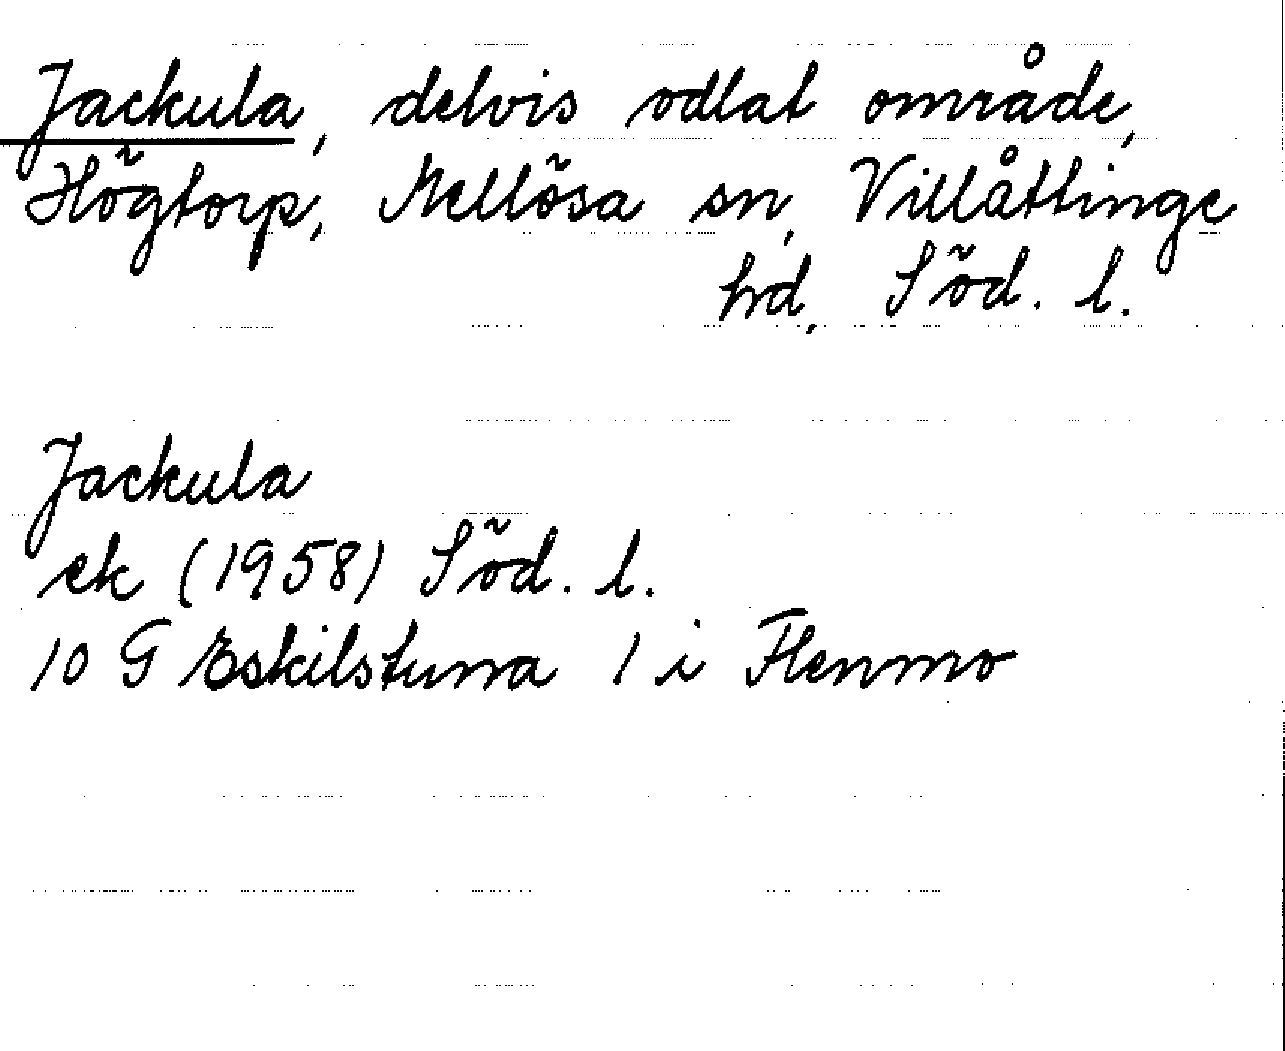 Jackula, delvis odlat område,
Högtorp, Mellösa sn, Villåttinge
hd, Söd. l.
Jackula
ek (1958) Söd. l.
10 G Eskilstuna 1 i Flenmo